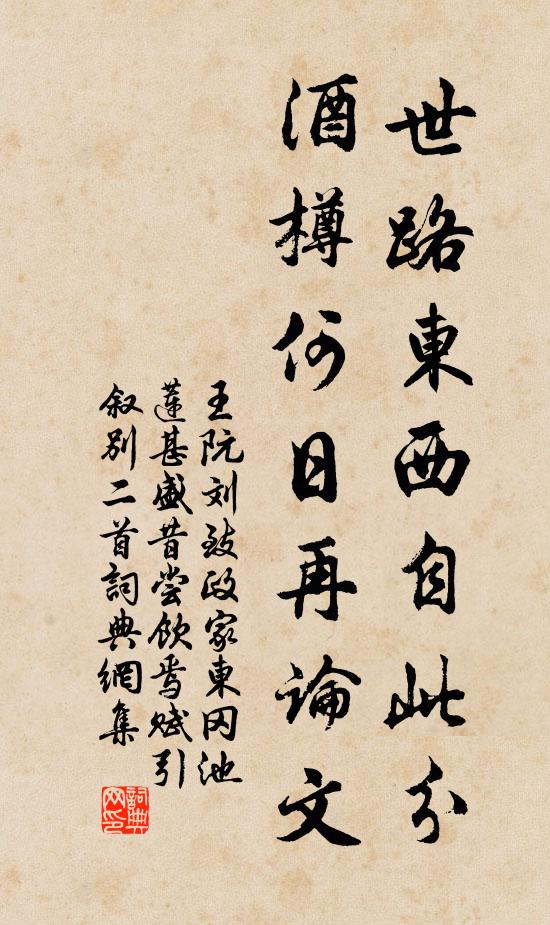 世路東西自此分
酒樽何日再論文
王阮刘致政家東园池
蓮甚盛昔尝飲焉赋引
叙别二首詞典網集
詞典网印